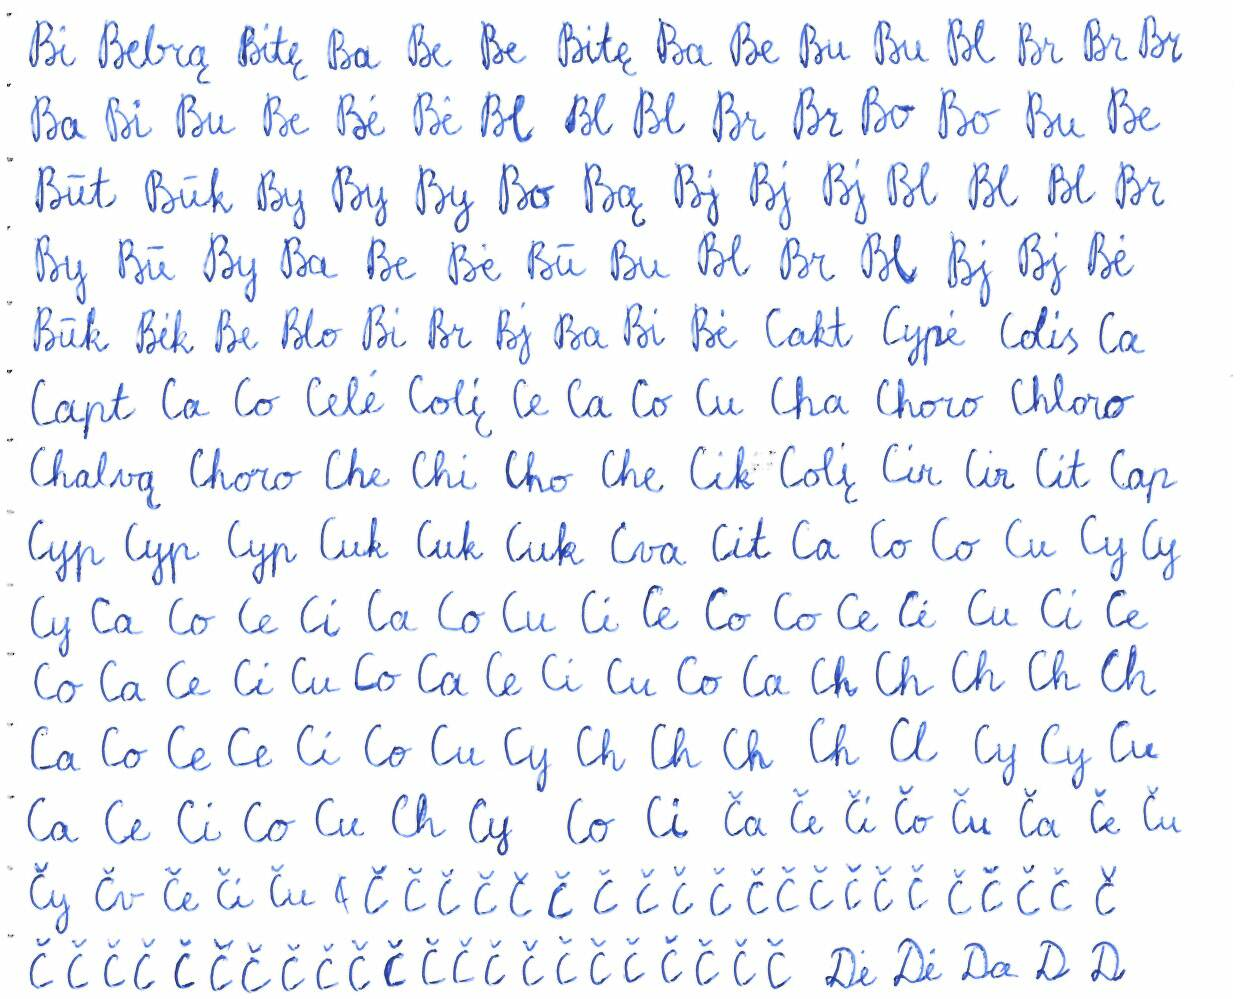 Bi Bebrą Bitę Ba Be Be Bitę Ba Be Bu Bu Bl Br Br Br
Ba Bi Bu Be Bė Bė Bl Bl Bl Br Br Bo Bo Bu Be
Būt Būk By By By Bo Bą Bj Bj Bj Bl Bl Bl Br
By Bū By Ba Be Bė Bū Bu Bl Br Bl Bj Bj Bė
Būk Bėk Be Blo Bi Br Bj Ba Bi Bė Cakt Cypė Colis Ca
Capt Ca Co Celė Colį Ce Ca Co Cu Cha Choro Chloro
Chalvą Choro Che Chi Cho Che Cik Colį Cir Cir Cit Cap
Cyp Cyp Cyp Cuk Cuk Cuk Cva Cit Ca Co Co Cu Cy Cy
Cy Ca Co Ce Ci Ca Co Cu Ci Ce Co Co Ce Cė Cu Ci Ce
Co Ca Ce Ci Cu Co Ca Ce Ci Cu Co Ca Ch Ch Ch Ch Ch
Ca Co Ce Ce Ci Co Cu Cy Ch Ch Ch Ch Cl Cy Cy Cu
Ca Ce Ci Co Cu Ch Cy Co Ci Ča Če Či Čo Ču Ča Če Ču
Čy Čv Če Či Ču Č Č Č Č Č Č Č Č Č Č Č Č Č Č Č Č Č Č Č Č Č
Č Č Č Č Č Č Č Č Č Č Č Č Č Č Č Č Č Č Č Č Č Č Dė Dė Da D D